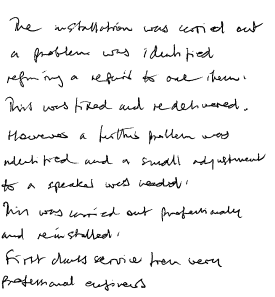 The installation was carried out
a problem was identified
requiring a repair to one item.
This was fixed and redelivered.
However a further problem was
identified and a small adjustment
to a speaker was needed.
This was carried out professionally
and reinstalled.
First class service from very
professional engineers